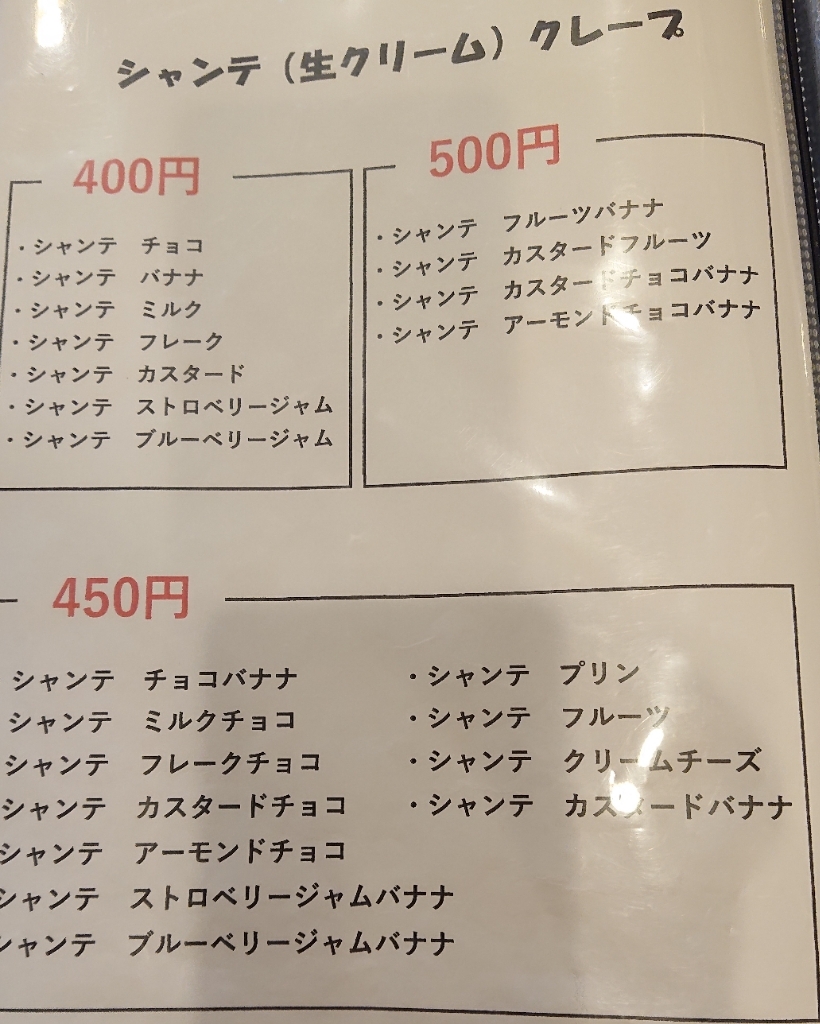 シャンテ（生クリーム）クレープ
400円
・シャンテ　チョコ
・シャンテ　バナナ
・シャンテ　ミルク
・シャンテ　フレーク
・シャンテ　カスタード
・シャンテ　ストロベリージャム
・シャンテ　ブルーベリージャム
500円
・シャンテ　フルーツバナナ
・シャンテ　カスタードフルーツ
・シャンテ　カスタードチョコバナナ
・シャンテ　アーモンドチョコバナナ
450円
シャンテ　チョコバナナ
シャンテ　ミルクチョコ
シャンテ　フレークチョコ
シャンテ　カスタードチョコ
シャンテ　アーモンドチョコ
シャンテ　ストロベリージャムバナナ
シャンテ　ブルーベリージャムバナナ
・シャンテ　プリン
・シャンテ　フルーツ
・シャンテ　クリームチーズ
・シャンテ　カスタードバナナ